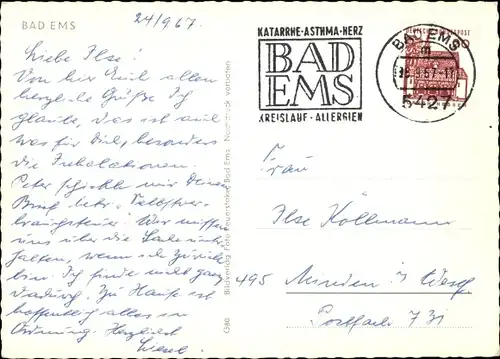 BAD EMS
24/9 67.
Liebe Ilse!
Von hier Euch allen
herzliche Grüße. Ich
glaube, das ist auch
was für Dich, besonders
die Inhalationen.
Peter schickte mir Deinen
Brief betr. "Selbstver-
brauchsteuer". Wir müssen
uns über die Sache unter-
halten, wenn ich zurück
bin. Ich finde nicht ganz
dadurch. Zu Hause ist
hoffentlich alles in
Ordnung. Herzlichst
Bildverlag Foto Feuerstein, Bad Ems Nachdruck verboten
KATARRHE-ASTHMA-HERZ
BAD
EMS
KREISLAUF - ALLERGIEN
BAD EMS
5427
Frau
Ilse Köllmann
495 Minden i/ Westf
Postfach 731